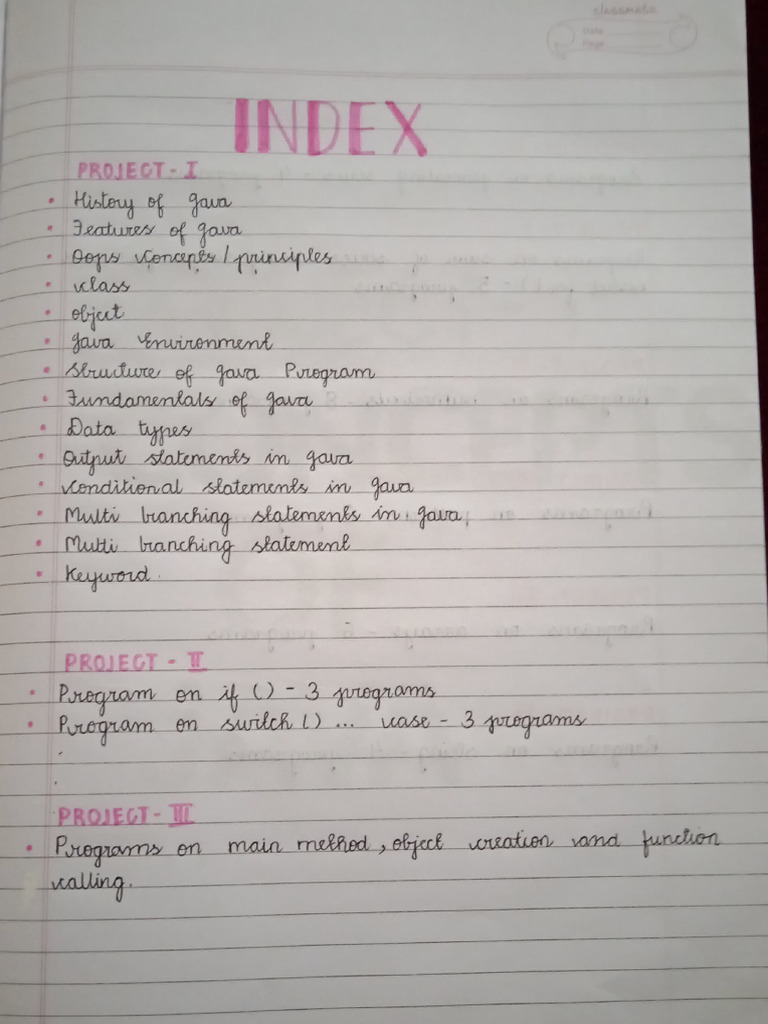 classmate
Date
Page
INDEX
PROJECT - I
• History of Java
• Features of Java
• Oops Concepts / principles
• class
• object
• Java Environment
• Structure of Java Program
• Fundamentals of Java
• Data types
• Output statements in Java
• Conditional statements in Java
• Multi branching statements in Java
• Multi branching statement
• Keyword.
PROJECT - II
• Program on if () - 3 programs
• Program on switch () ... case - 3 programs
.
.
PROJECT - III
• Programs on main method, object creation and function
calling.